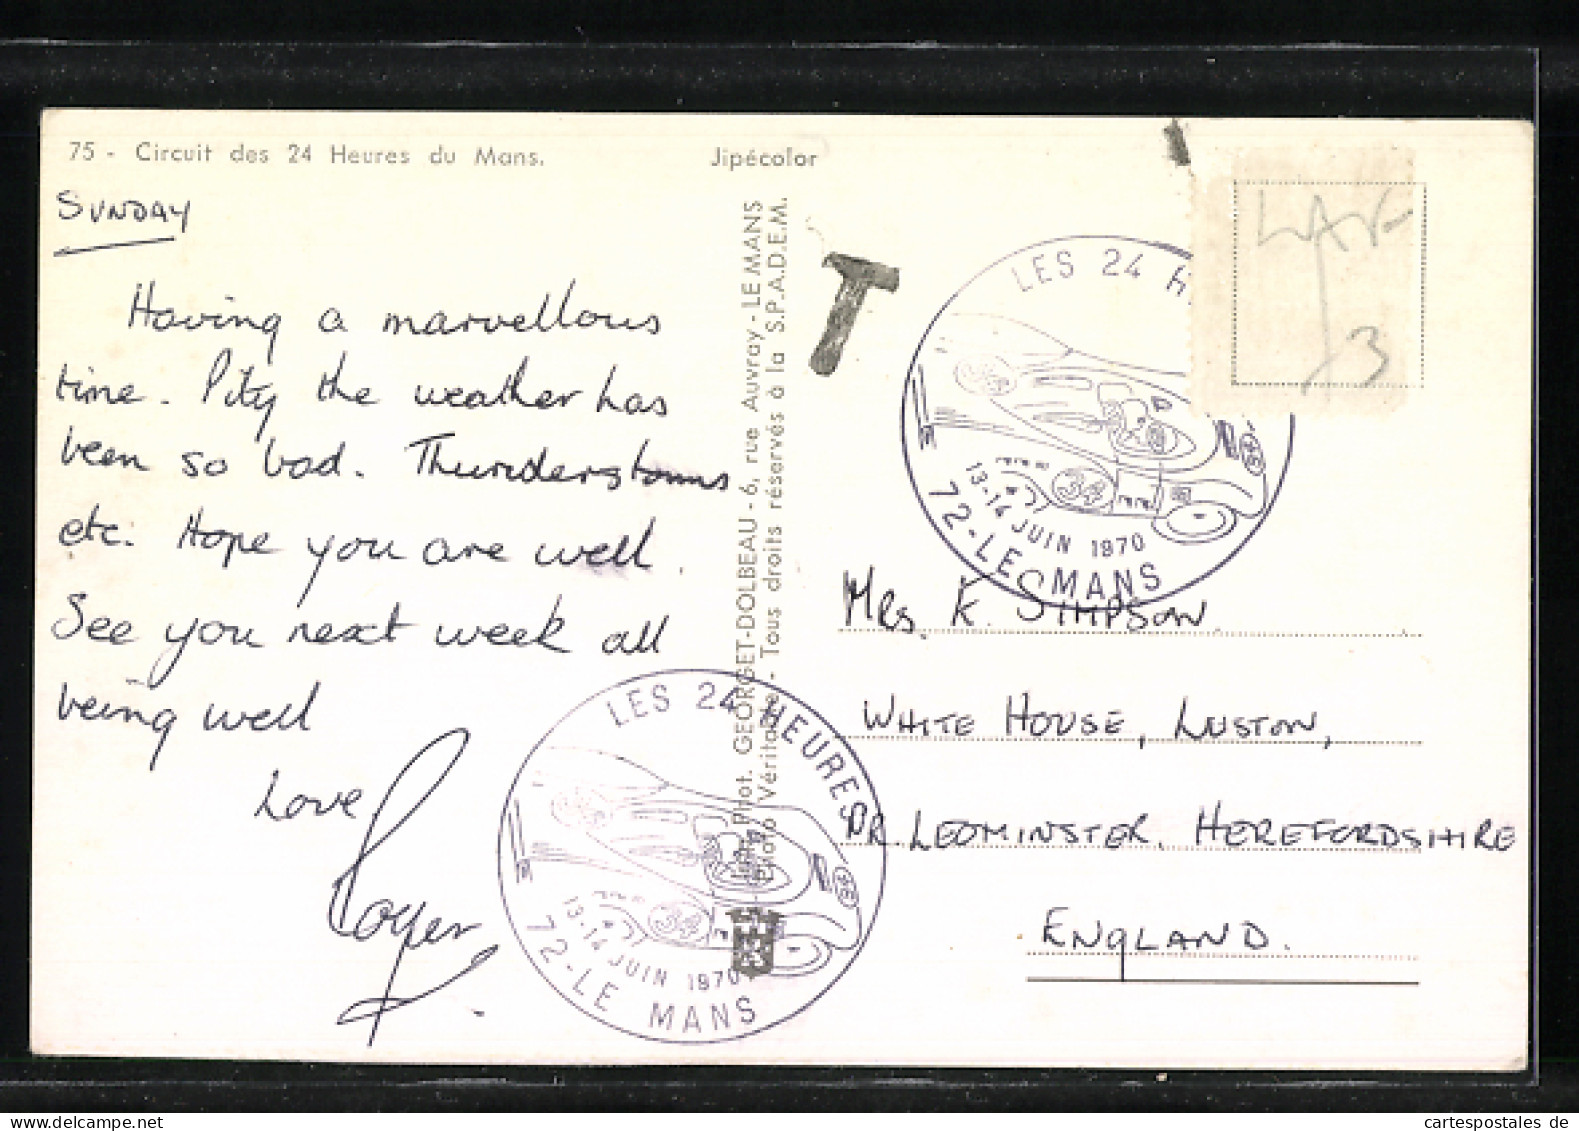 75 - Circuit des 24 Heures du Mans.
Jipécolor
SUNDAY
Having a marvellous
time. Pity the weather has
been so bad. Thunderstorms
etc. Hope you are well.
See you next week all
being well
Love
Roger
GEORGET-DOLBEAU - 6, rue Auvray - LE MANS
Photo Véritable - Tous droits réservés à la S.P.A.D.E.M.
T
LES 24 H
34
13-14 JUIN 1970
72-LE MANS
3
Mrs. K. SIMPSON.
WHITE HOUSE, LUSTON,
NR. LEOMINSTER. HEREFORDSHIRE
ENGLAND.
LES 24 HEURES
34
13-14 JUIN 1970
72-LE MANS
cartespostales de